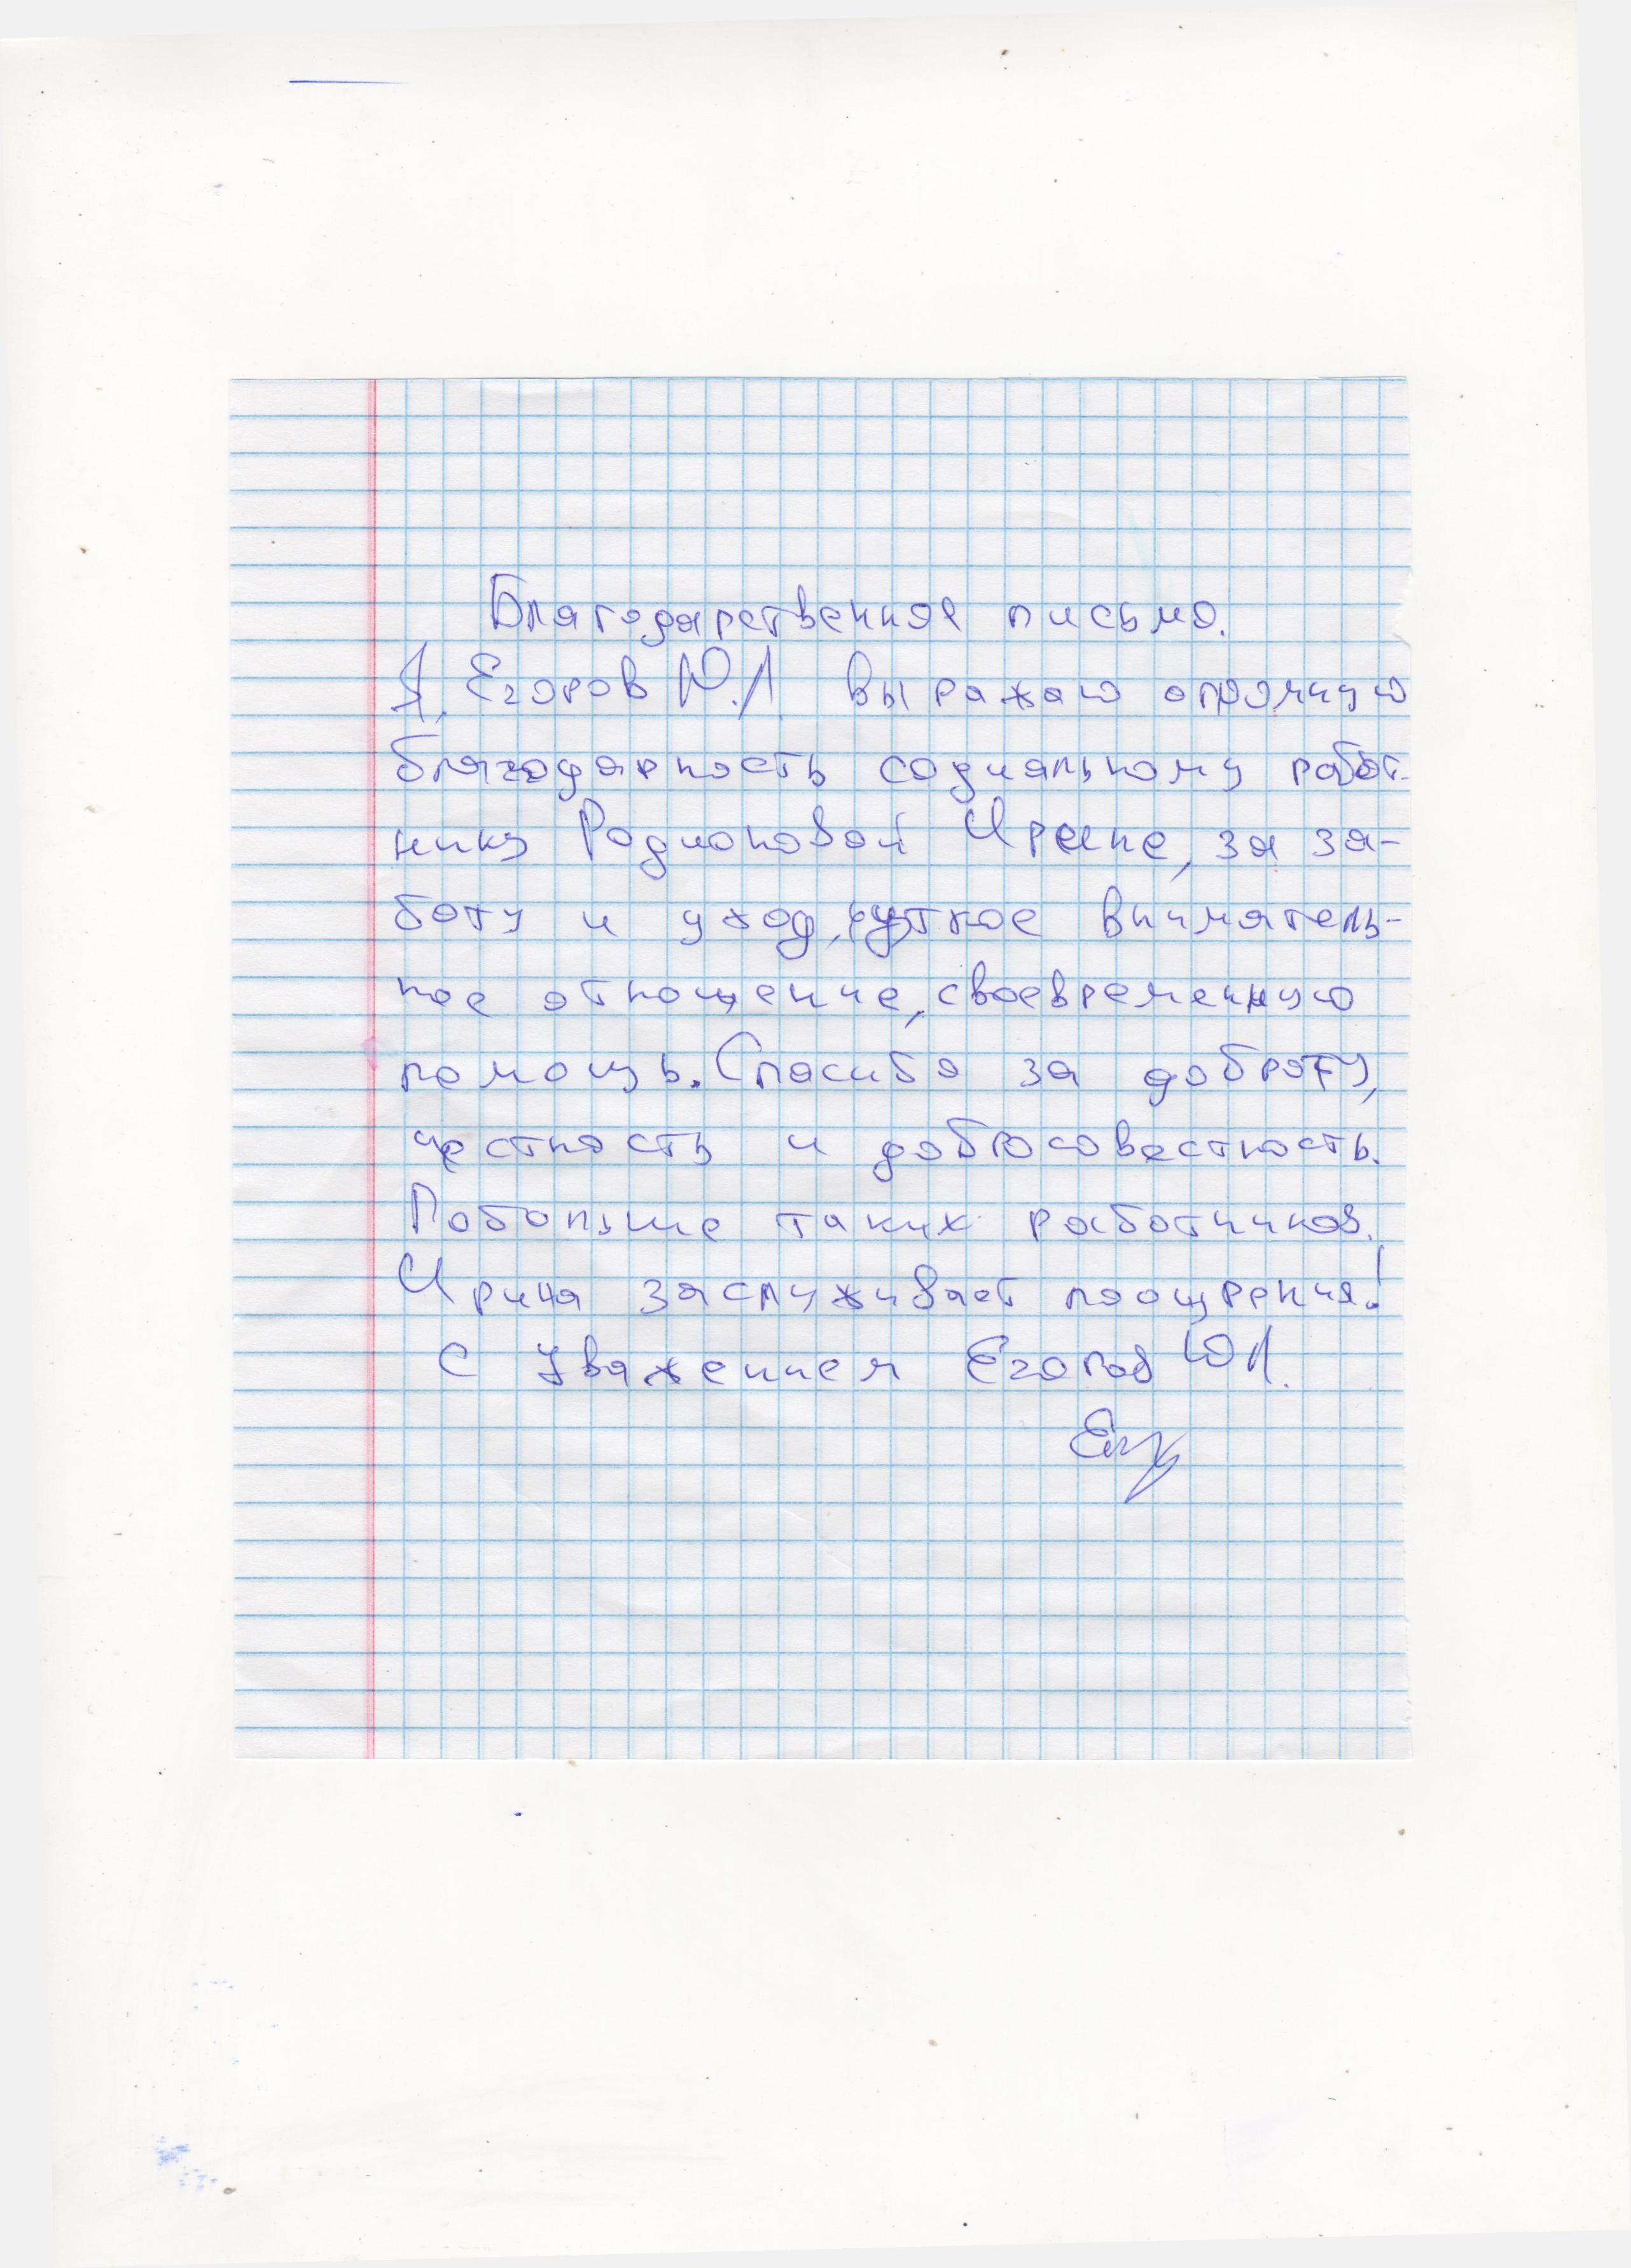 Благодарственное письмо.
Я, Егоров Ю.Л. выражаю огромную
благодарность социальному работ-
нику Родионовой Ирине, за за-
боту и уход, чуткое вниматель-
ное отношение, своевременную
помощь. Спасибо за доброту,
честность и добросовестность.
Побольше таких работников.
Ирина заслуживает поощрения!
С Уважением Егоров Ю Л.